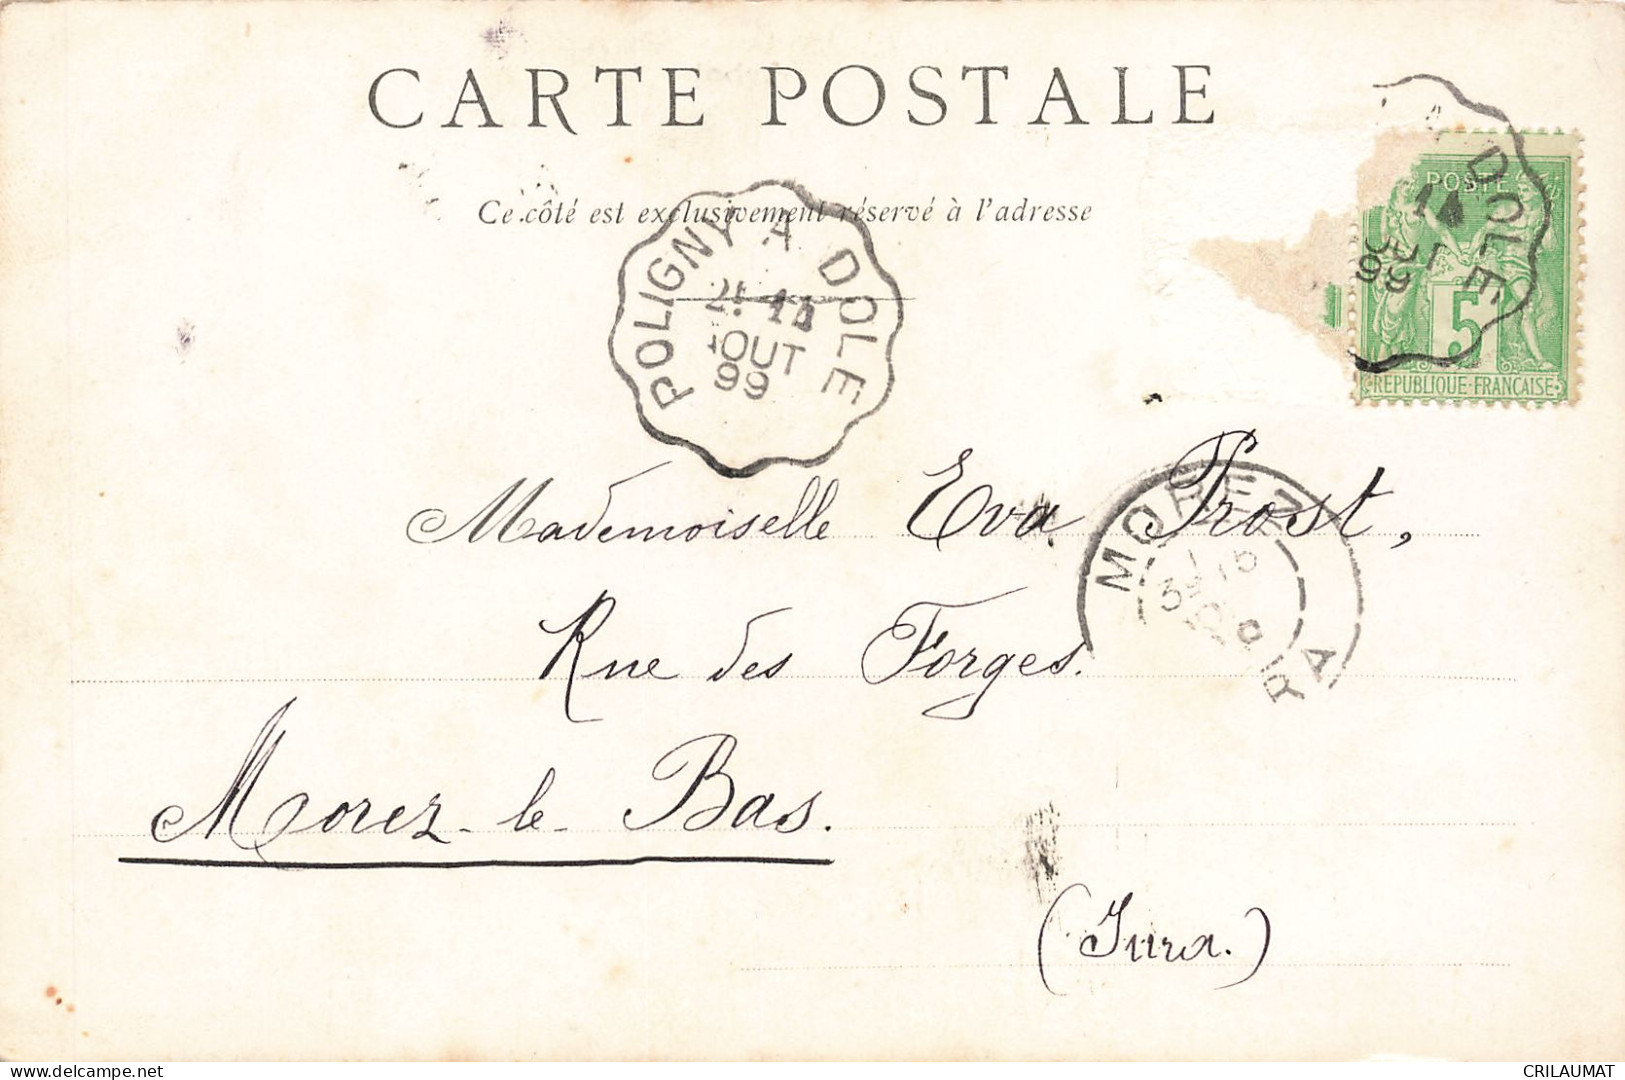 CARTE POSTALE
Ce côté est exclusivement réservé à l'adresse
POLIGNY A DOLE
2E 14
AOUT
99
A DOLE
14
OUT
99
POSTE
5
REPUBLIQUE FRANÇAISE
Mademoiselle Eva Prost,
MOREZ
JURA
Rue des Forges.
Morez-le-Bas.
(Jura.)
delcampe.net
CRILAUMAT